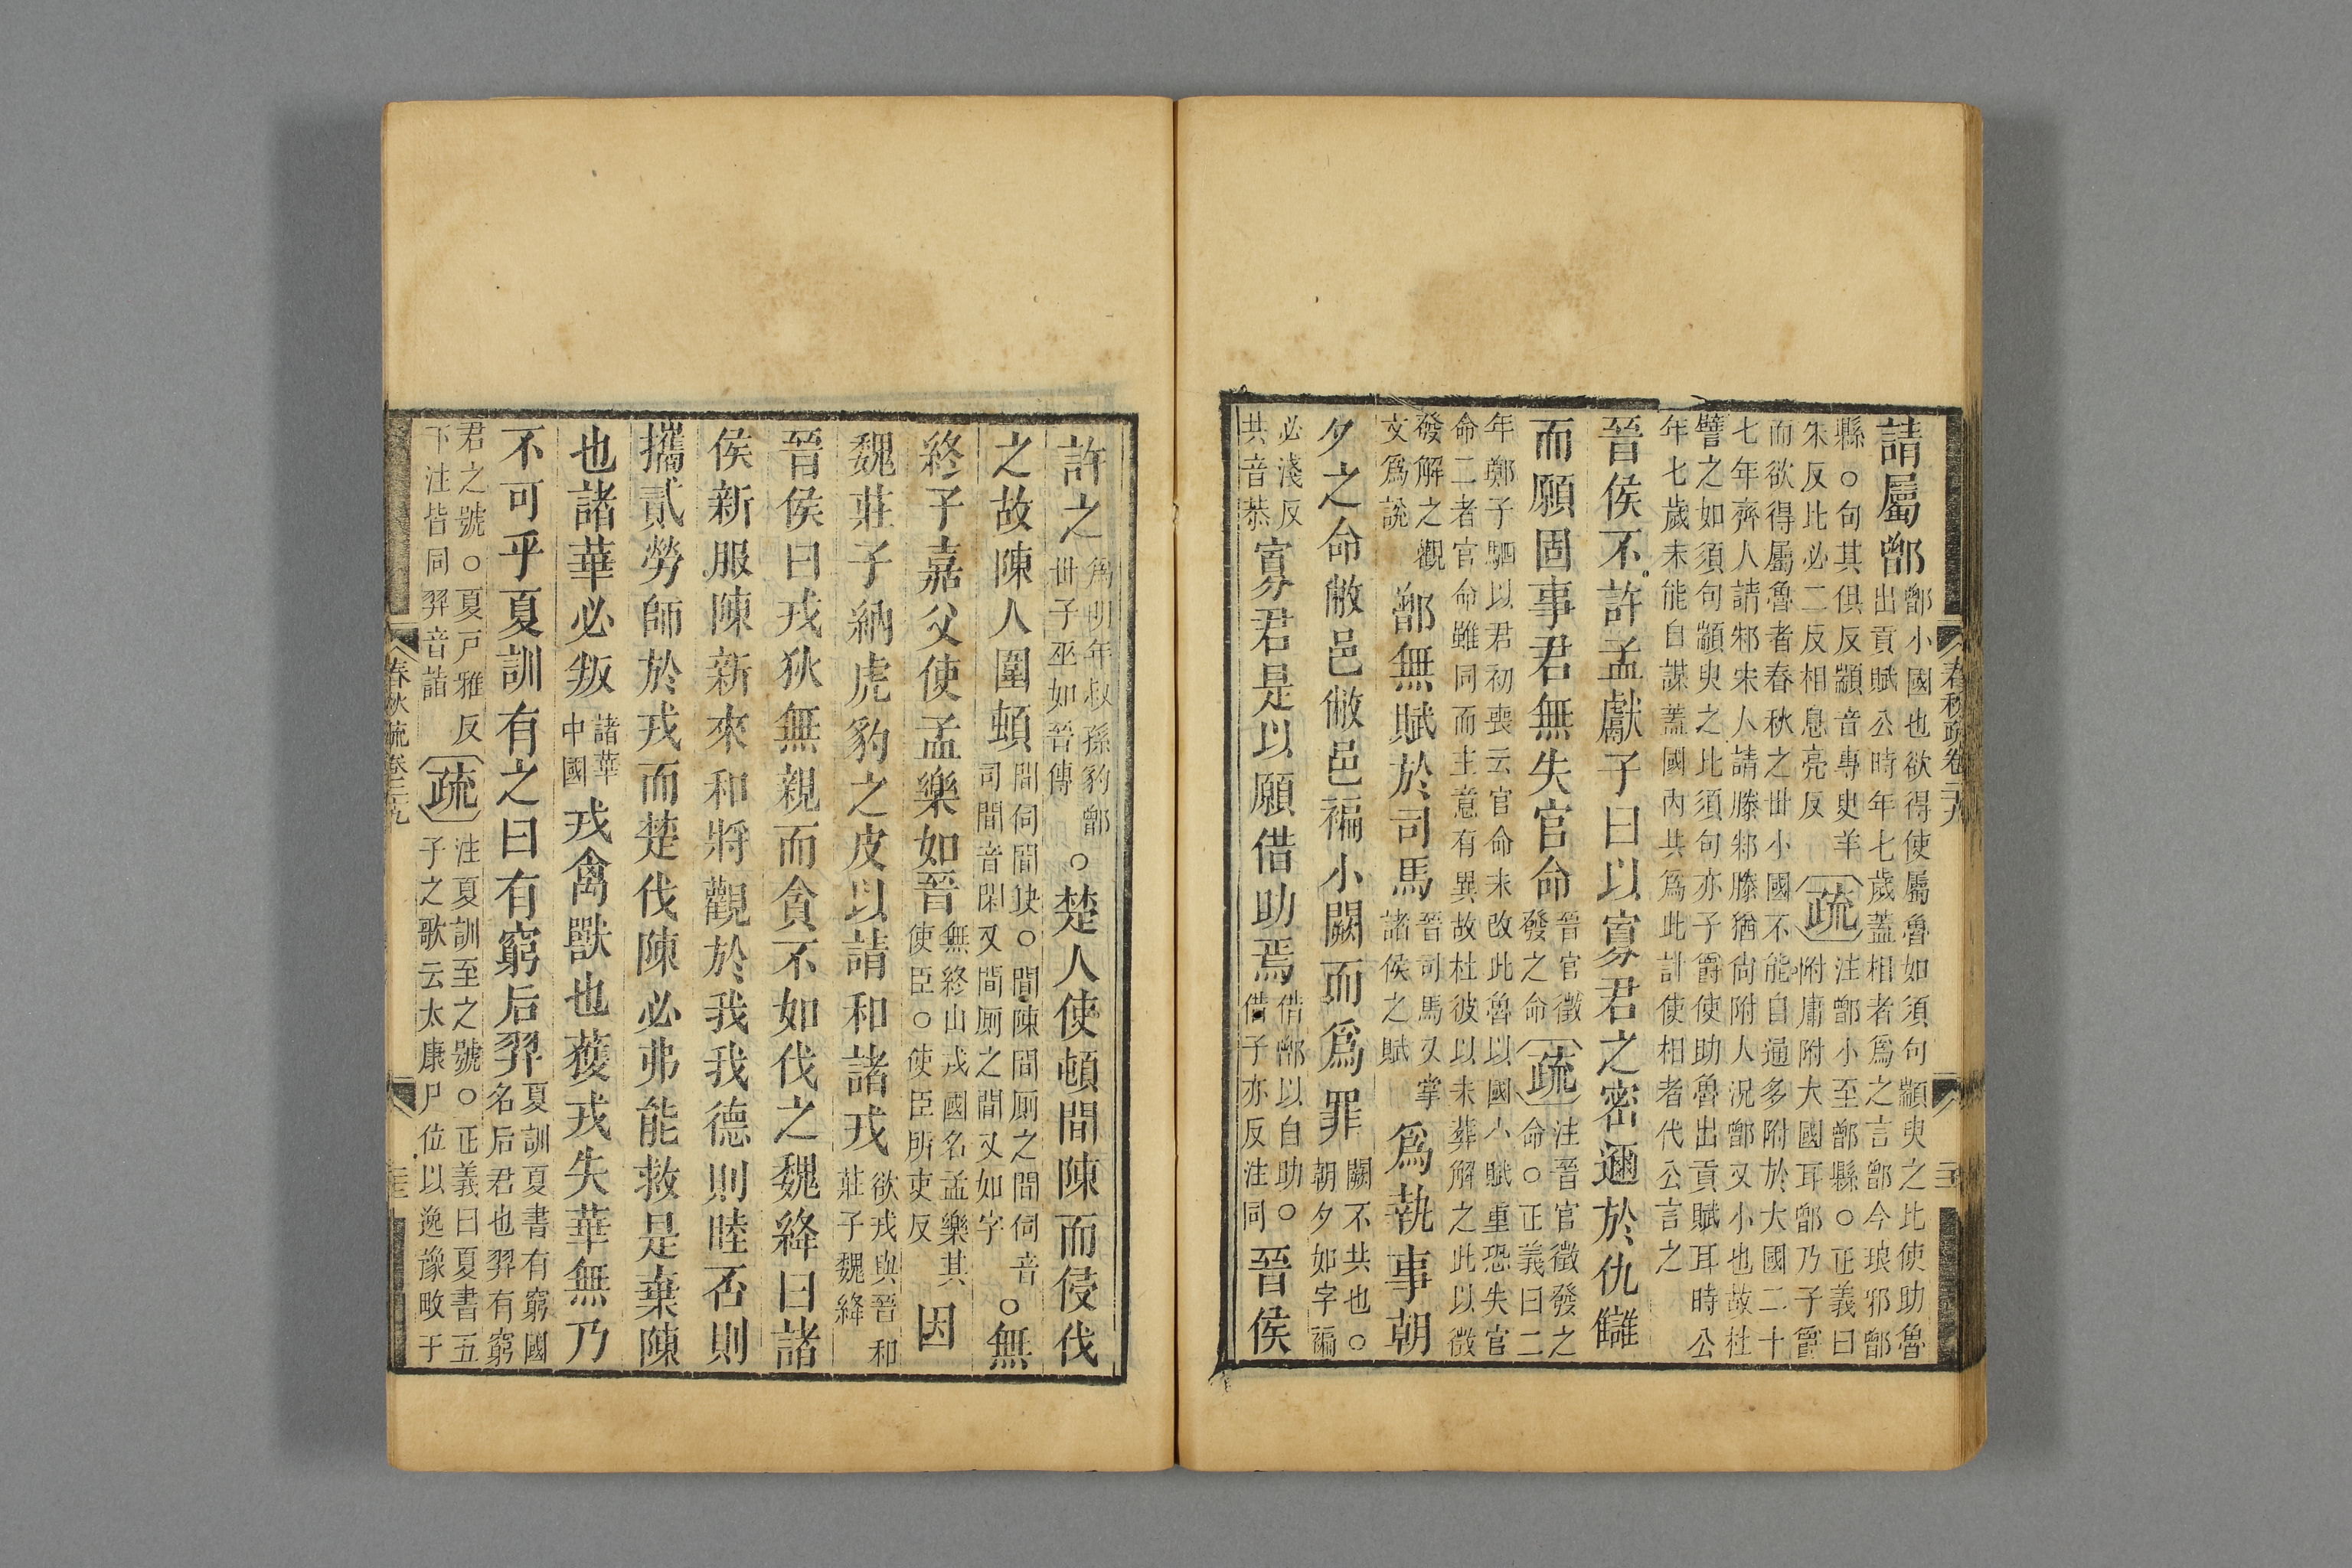 請屬鄫鄫小國也欲得使屬魯如須句顓臾之比使助魯
出貢賦公時年七歲蓋相者爲之言鄫今琅邪鄫
縣○句其俱反顓音專臾羊
朱反比必二反相息亮反疏注鄫小至鄫縣○正義曰
附庸附大國耳鄫乃子爵
而欲得屬魯者春秋之世小國不能自通多附於大國二十
七年齊人請邾宋人請滕邾滕猶尙附人況鄫又小也故杜
譬之如須句顓臾之比須句亦子爵使助魯出貢賦耳時公
年七歲未能自謀蓋國內共爲此計使相者代公言之
晉侯不許孟獻子曰以寡君之密邇於仇讎
而願固事君無失官命晉官徵
發之命疏注晉官徵發之
命○正義曰二
年鄭子駟以君初喪云官命未改此魯以國小賦重恐失官
命二者官命雖同而主意有異故杜彼以未葬解之此以徵
發解之觀
文爲說鄫無賦於司馬晉司馬又掌
諸侯之賦爲執事朝
夕之命敝邑敝邑褊小闕而爲罪闕不共也○
朝夕如字褊
必淺反
共音恭寡君是以願借助焉借鄫以自助○
借子亦反注同晉侯
許之爲明年叔孫豹鄫
世子巫如晉傳○楚人使頓間陳而侵伐
之故陳人圍頓間伺間缺○間陳間厠之間伺音
司間音閑又間厠之間又如字○無
終子嘉父使孟樂如晉無終山戎國名孟樂其
使臣○使臣所吏反因
魏莊子納虎豹之皮以請和諸戎欲戎與晉和
莊子魏絳
晉侯曰戎狄無親而貪不如伐之魏絳曰諸
侯新服陳新來和將觀於我我德則睦否則
攜貳勞師於戎而楚伐陳必弗能救是棄陳
也諸華必叛諸華
中國戎禽獸也獲戎失華無乃
不可乎夏訓有之曰有窮后羿夏訓夏書有窮國
名后君也羿有窮
君之號○夏戸雅反
下注皆同羿音詣疏注夏訓至之號○正義曰夏書五
子之歌云太康尸位以逸豫畋于
春秋疏卷二十九
春秋疏卷二十九